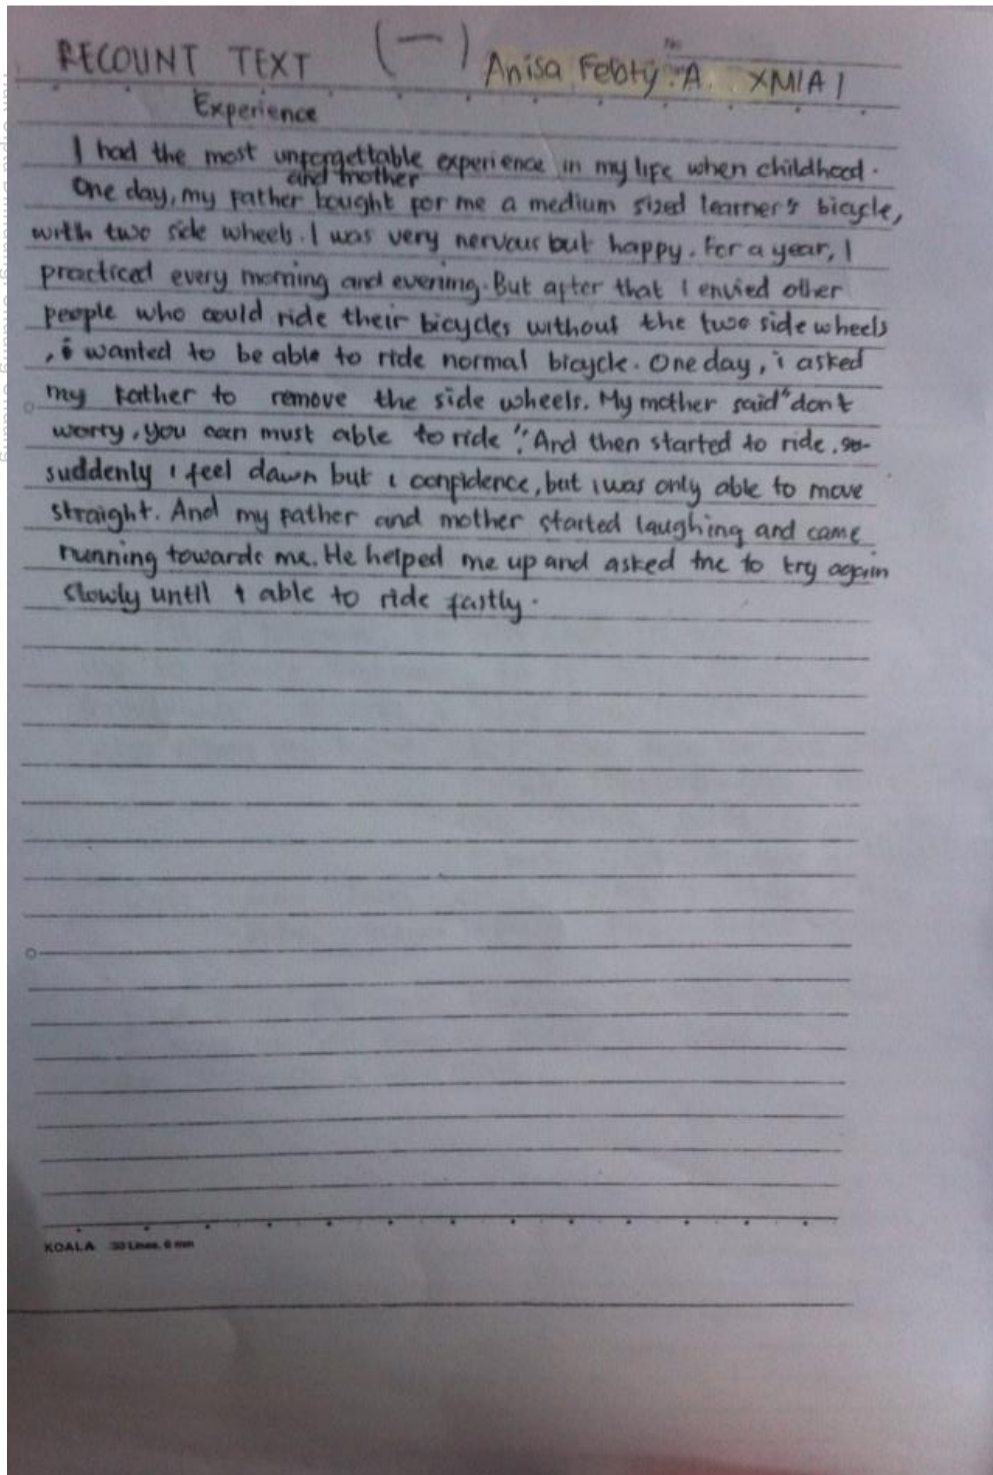 RECOUNT TEXT (—) Anisa Febty .A. XMIA 1
No
Experience
I had the most unforgettable experience in my life when childhood.
and mother
One day, my father bought for me a medium sized learner's bicycle,
with two side wheels. I was very nervous but happy. For a year, I
practiced every morning and evening. But after that I envied other
people who could ride their bicycles without the two side wheels
, i wanted to be able to ride normal bicycle. One day, i asked
my father to remove the side wheels. My mother said "don't
worry, you can must able to ride". And then started to ride. so
suddenly i feel dawn but i confidence, but i was only able to move
straight. And my father and mother started laughing and came
running towards me. He helped me up and asked me to try again
slowly until I able to ride fastly.
KOALA 30 Lines, 6 mm